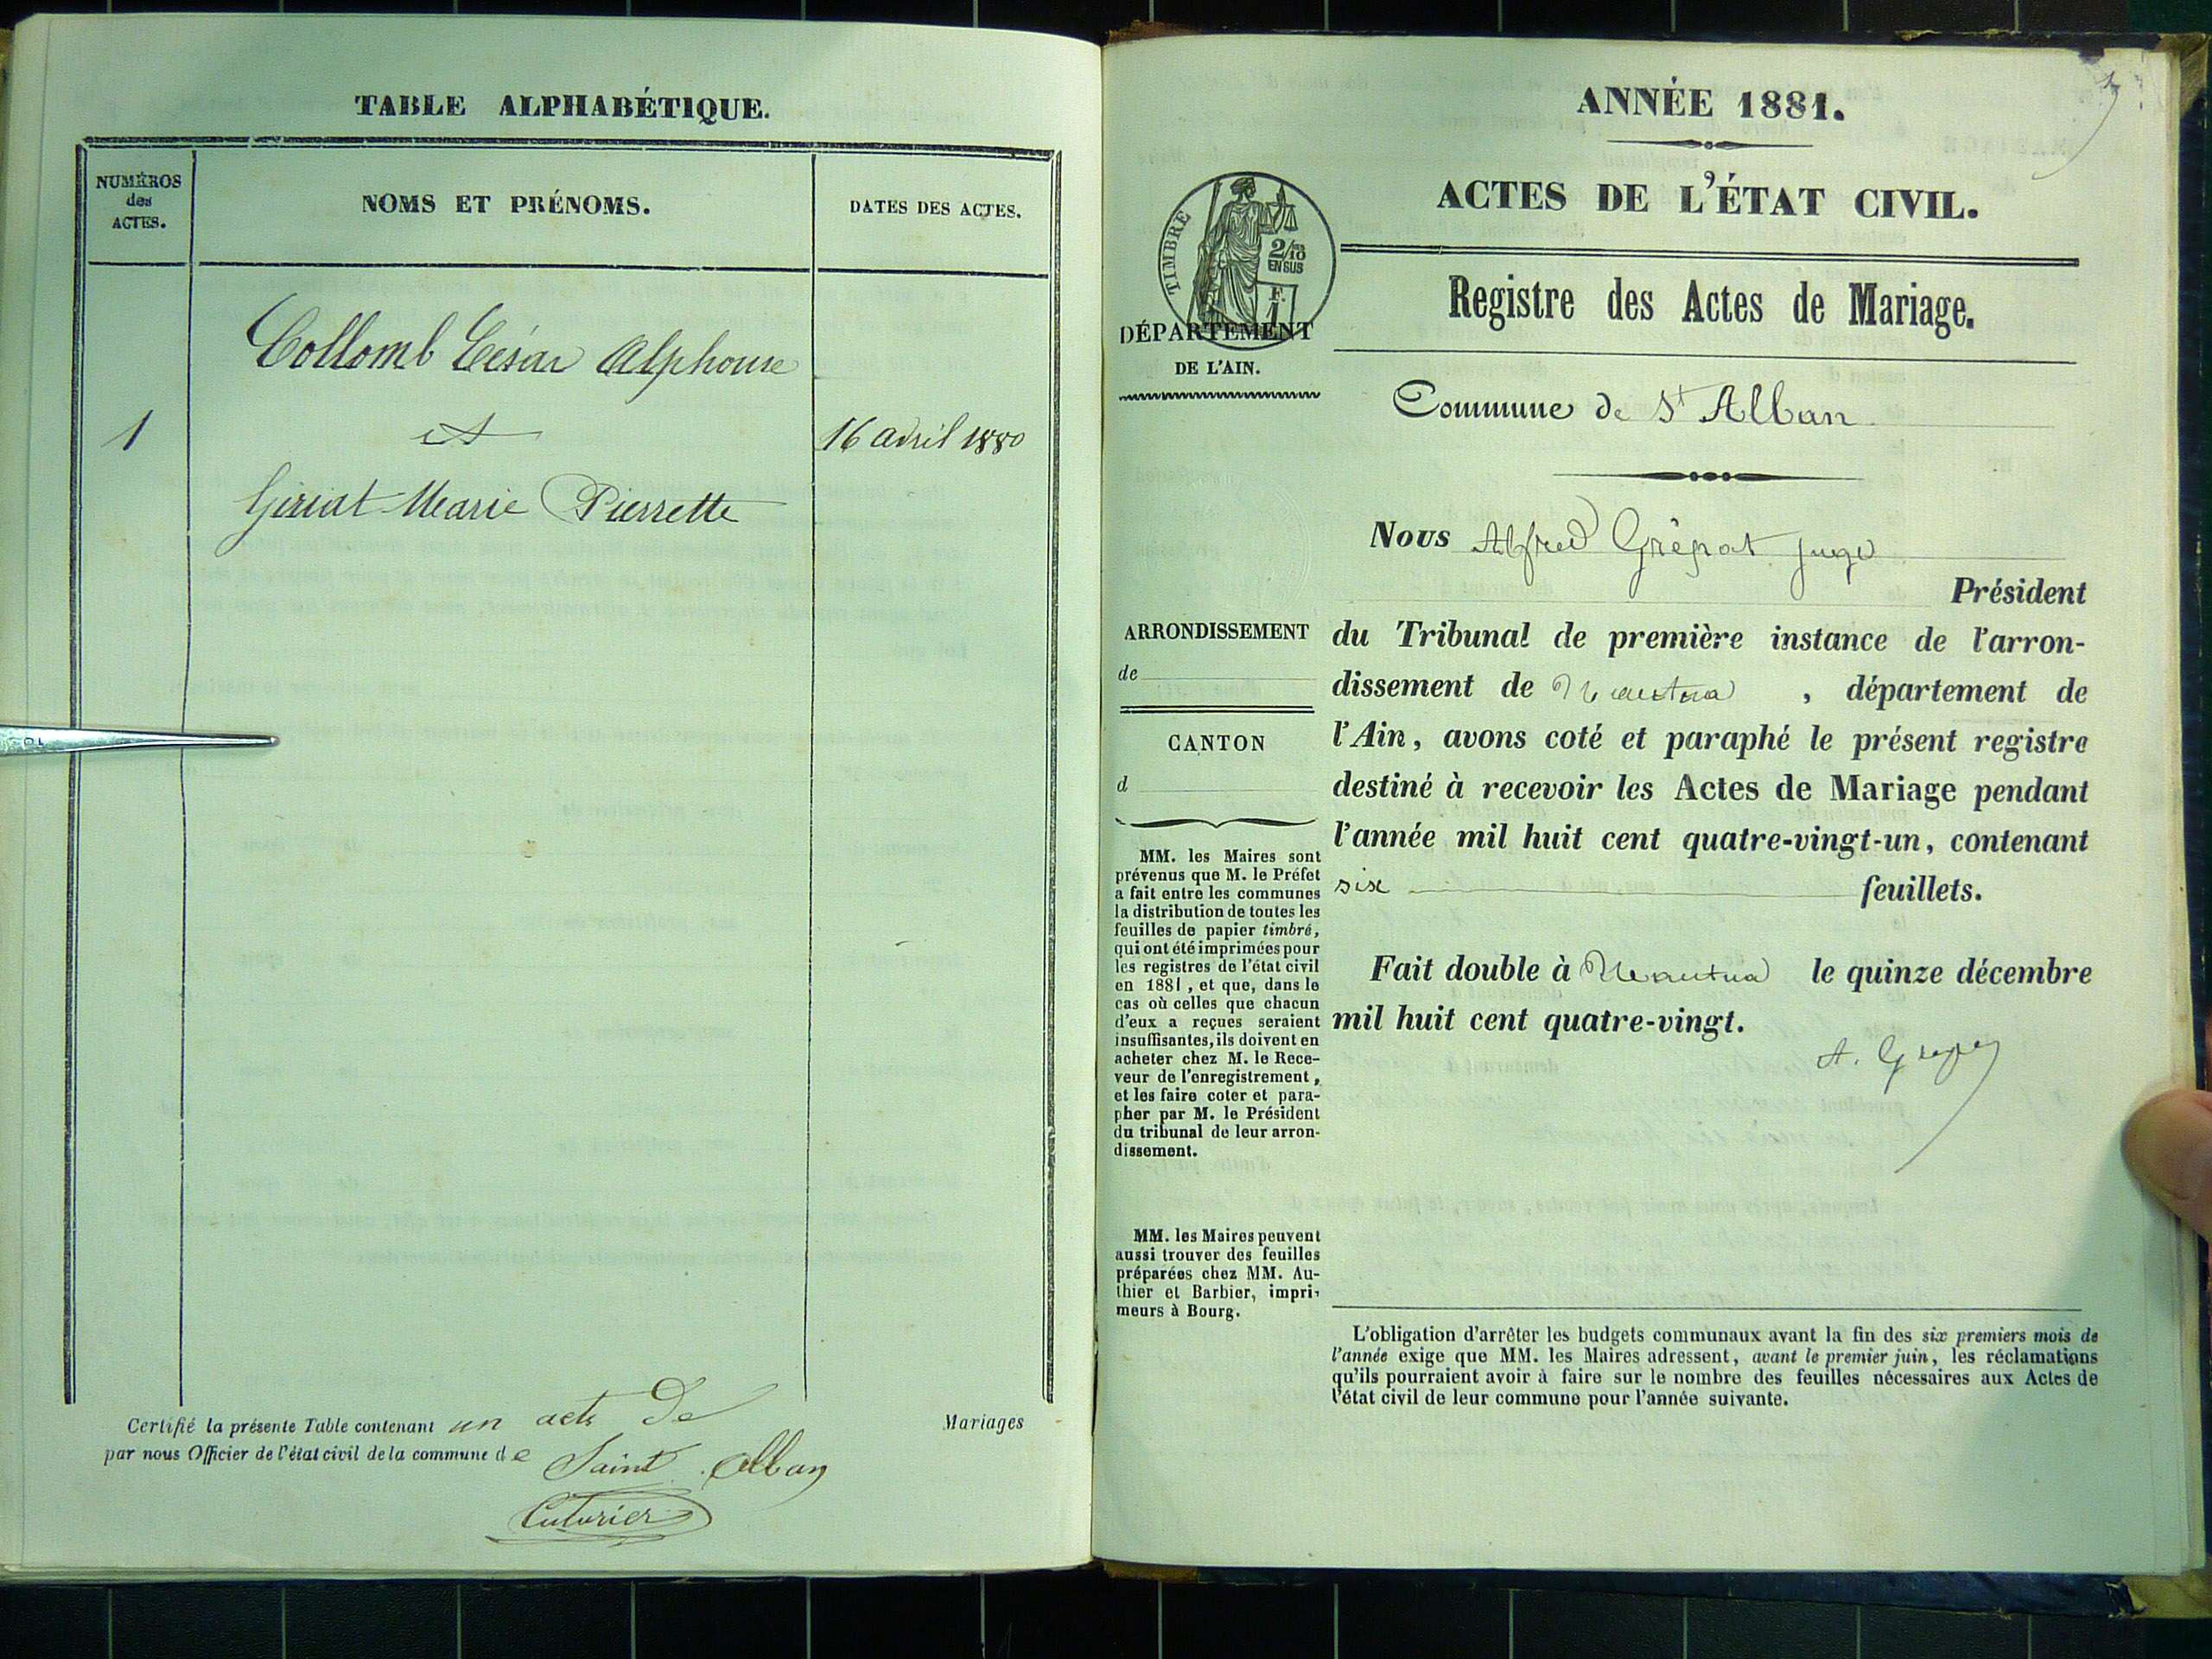 TABLE ALPHABÉTIQUE.
NUMÉROS
des
ACTES.
NOMS ET PRÉNOMS.
DATES DES ACTES.
Collomb César Alphonse
1
et
16 avril 1880
Giriat Marie Pierrette
Certifié la présente Table contenant un acte de Mariages
par nous Officier de l'état civil de la commune de Saint Alban
Cuturier
ANNÉE 1881.
ACTES DE L'ÉTAT CIVIL.
TIMBRE
2/10
EN SUS
F.
1
DÉPARTEMENT
DE L'AIN.
Registre des Actes de Mariage.
Commune de St Alban
ARRONDISSEMENT
de
CANTON
d
MM. les Maires sont
prévenus que M. le Préfet
a fait entre les communes
la distribution de toutes les
feuilles de papier timbré,
qui ont été imprimées pour
les registres de l'état civil
en 1881, et que, dans le
cas où celles que chacun
d'eux a reçues seraient
insuffisantes, ils doivent en
acheter chez M. le Rece-
veur de l'enregistrement,
et les faire coter et para-
pher par M. le Président
du tribunal de leur arron-
dissement.
MM. les Maires peuvent
aussi trouver des feuilles
préparées chez MM. Au-
thier et Barbier, impri-
meurs à Bourg.
Nous Alfred juge
Président
du Tribunal de première instance de l'arron-
dissement de Nantua, département de
l'Ain, avons coté et paraphé le présent registre
destiné à recevoir les Actes de Mariage pendant
l'année mil huit cent quatre-vingt-un, contenant
six feuillets.
Fait double à Nantua le quinze décembre
mil huit cent quatre-vingt.
L'obligation d'arrêter les budgets communaux avant la fin des six premiers mois de
l'année exige que MM. les Maires adressent, avant le premier juin, les réclamations
qu'ils pourraient avoir à faire sur le nombre des feuilles nécessaires aux Actes de
l'état civil de leur commune pour l'année suivante.